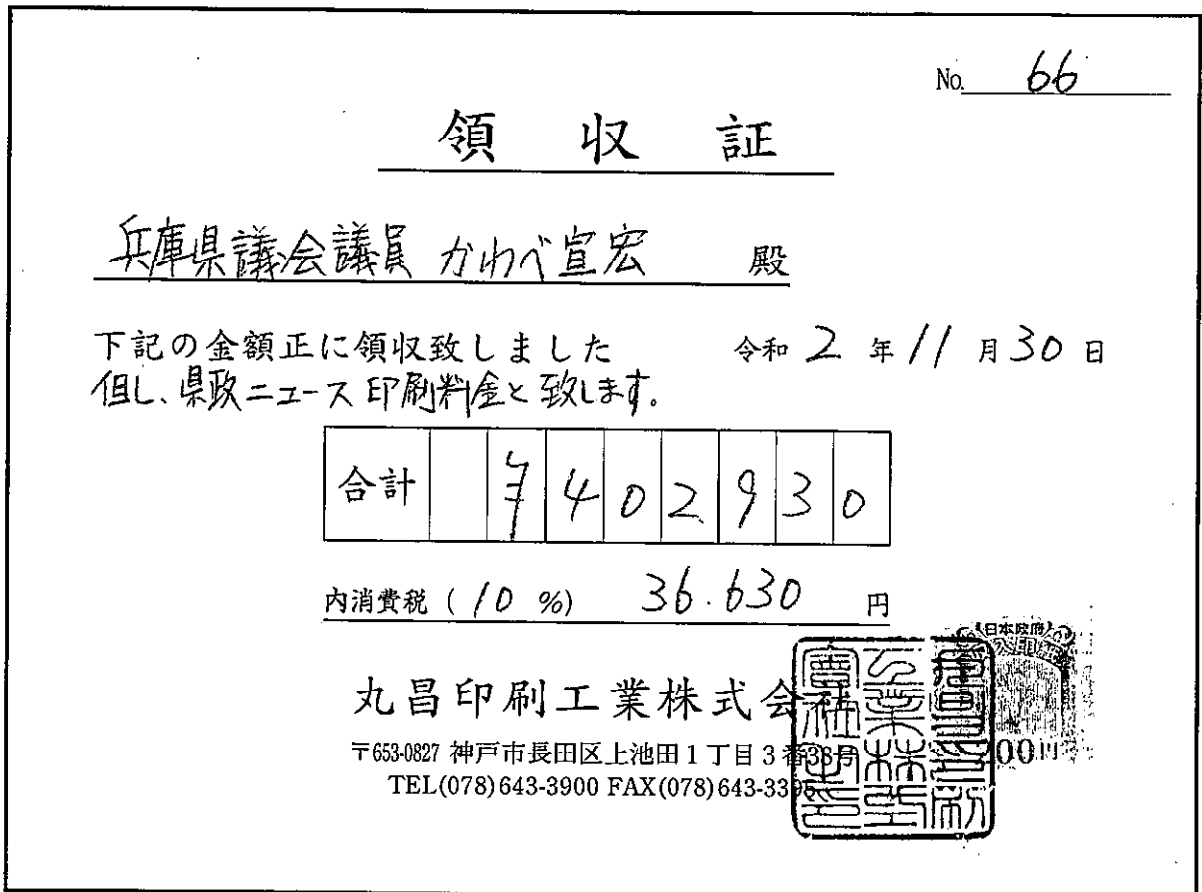 No. 66
領収証
兵庫県議会議員 かわべ宣宏 殿
下記の金額正に領収致しました 令和 2 年 11 月 30 日
但し、県政ニュース印刷料金と致します。
合計 ¥402930
内消費税 (10 %) 36.630 円
日本政府
丸昌印刷工業株式会社
〒653-0827 神戸市長田区上池田1丁目3番38号
00円
TEL(078)643-3900 FAX(078)643-3395